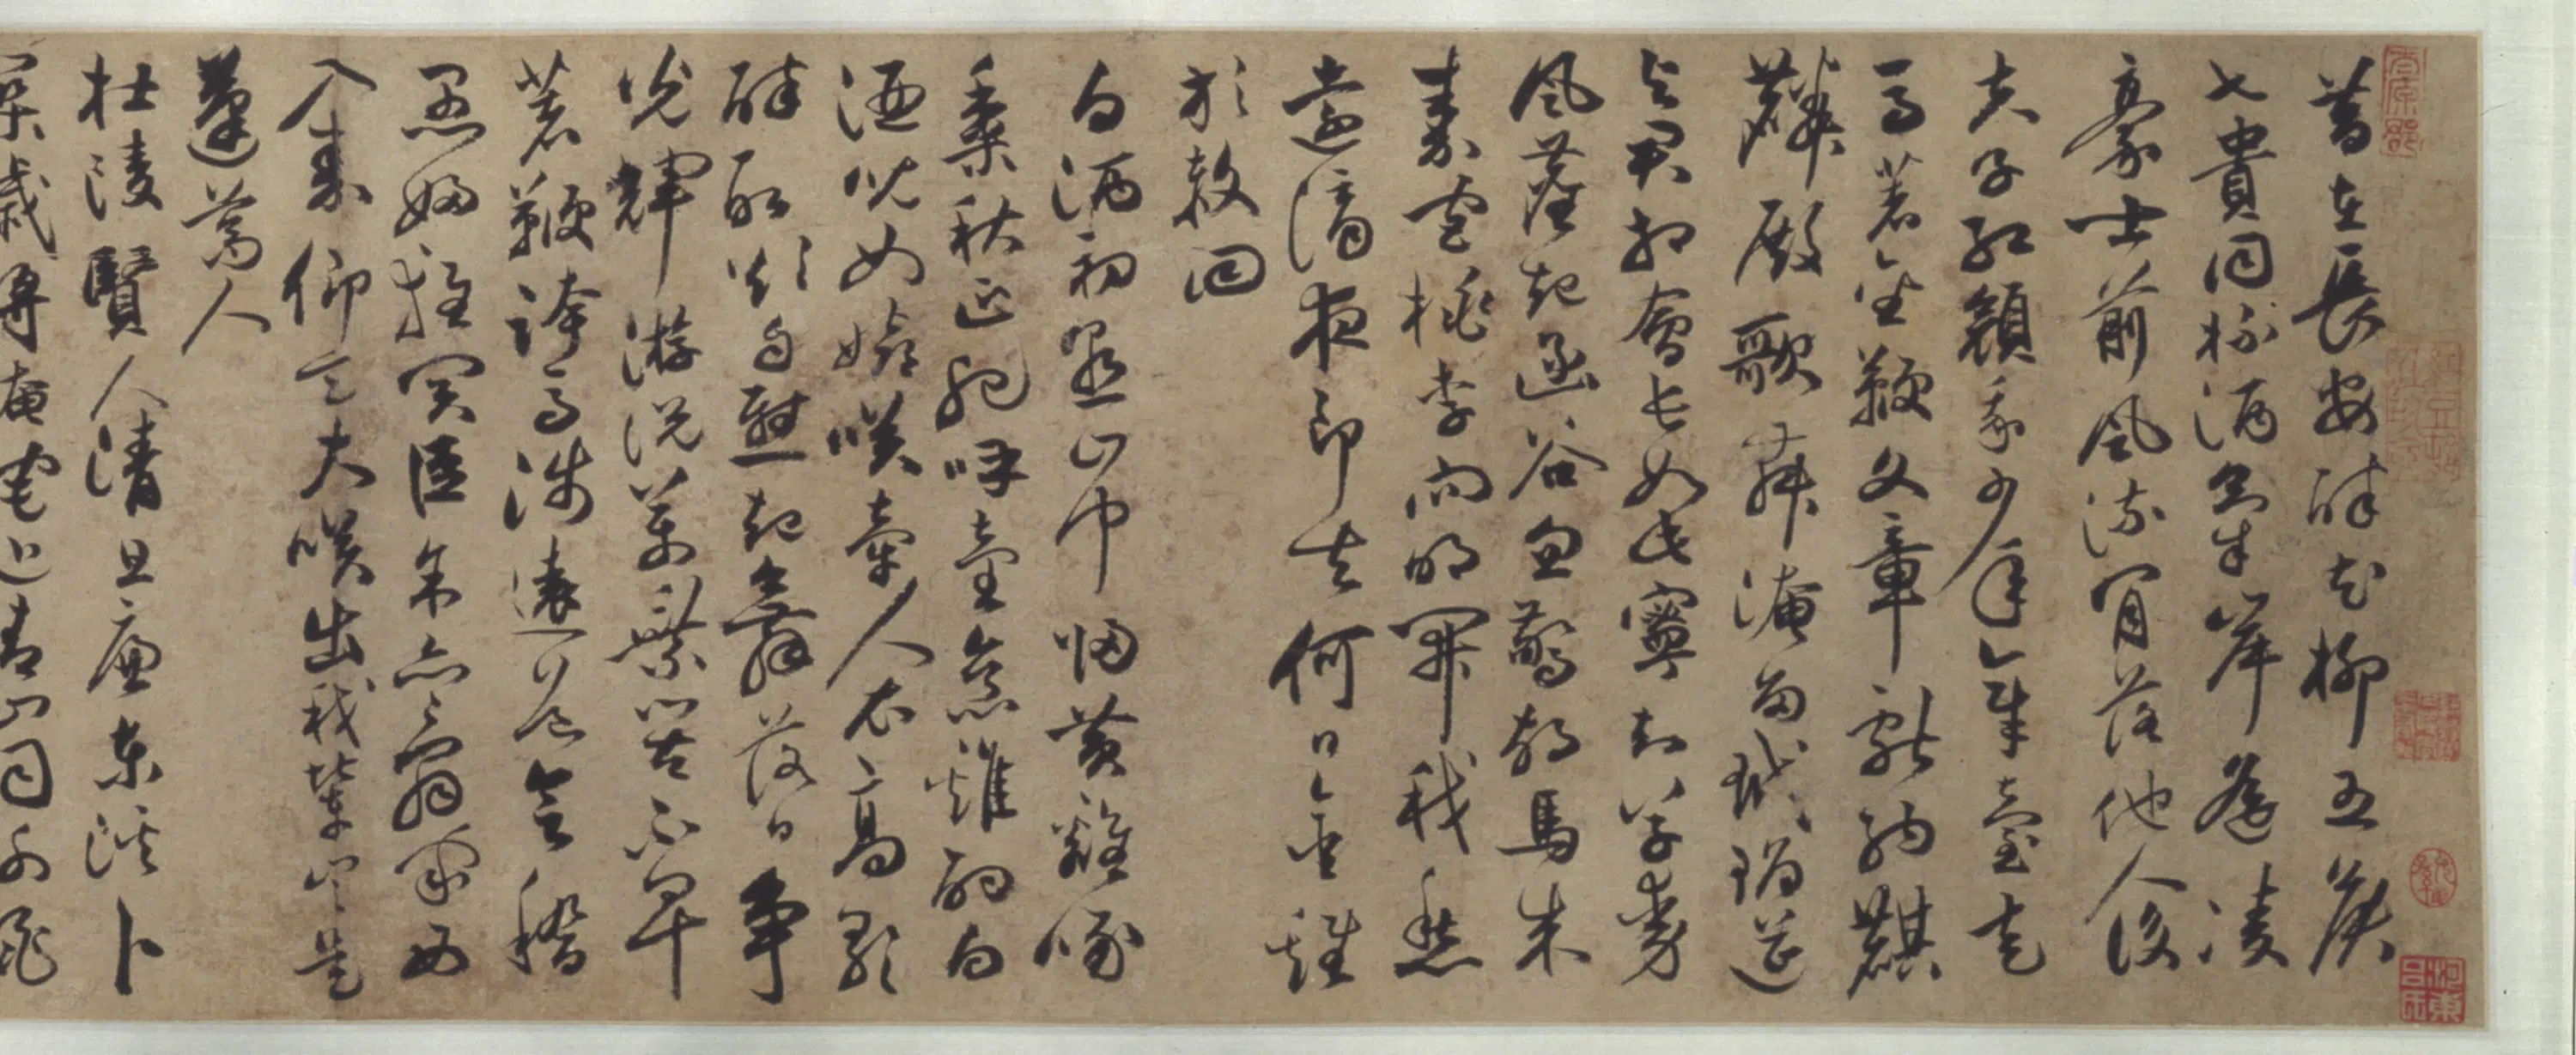 昔在長安醉花柳五侯
七貴同杯酒氣岸遙凌
豪士前風流肯落他人後
夫子紅顏我少年章臺走
馬著金鞭文章獻納麒
麟殿歌舞淹留玳瑁筵
與君相會長如此寧知草動
風塵起函谷忽驚胡馬來
秦宮桃李向明開我愁
遠謫夜郎去何日金雞
放赦回
白酒初熟山中歸黃雞啄
黍秋正肥呼童烹雞酌白
酒兒女嬉笑牽人衣高歌
醉取欲自慰起舞落日爭
光輝游說萬乘苦不早
著鞭跨馬涉遠道會稽
愚婦輕買臣余亦辭家西
入秦仰天大笑出我輩豈是
蓬蒿人
杜陵賢人清且廉東谿卜
築歲將淹宅近青山同謝朓
河東